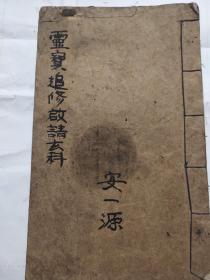 靈寶追修啟請玄科
安一源